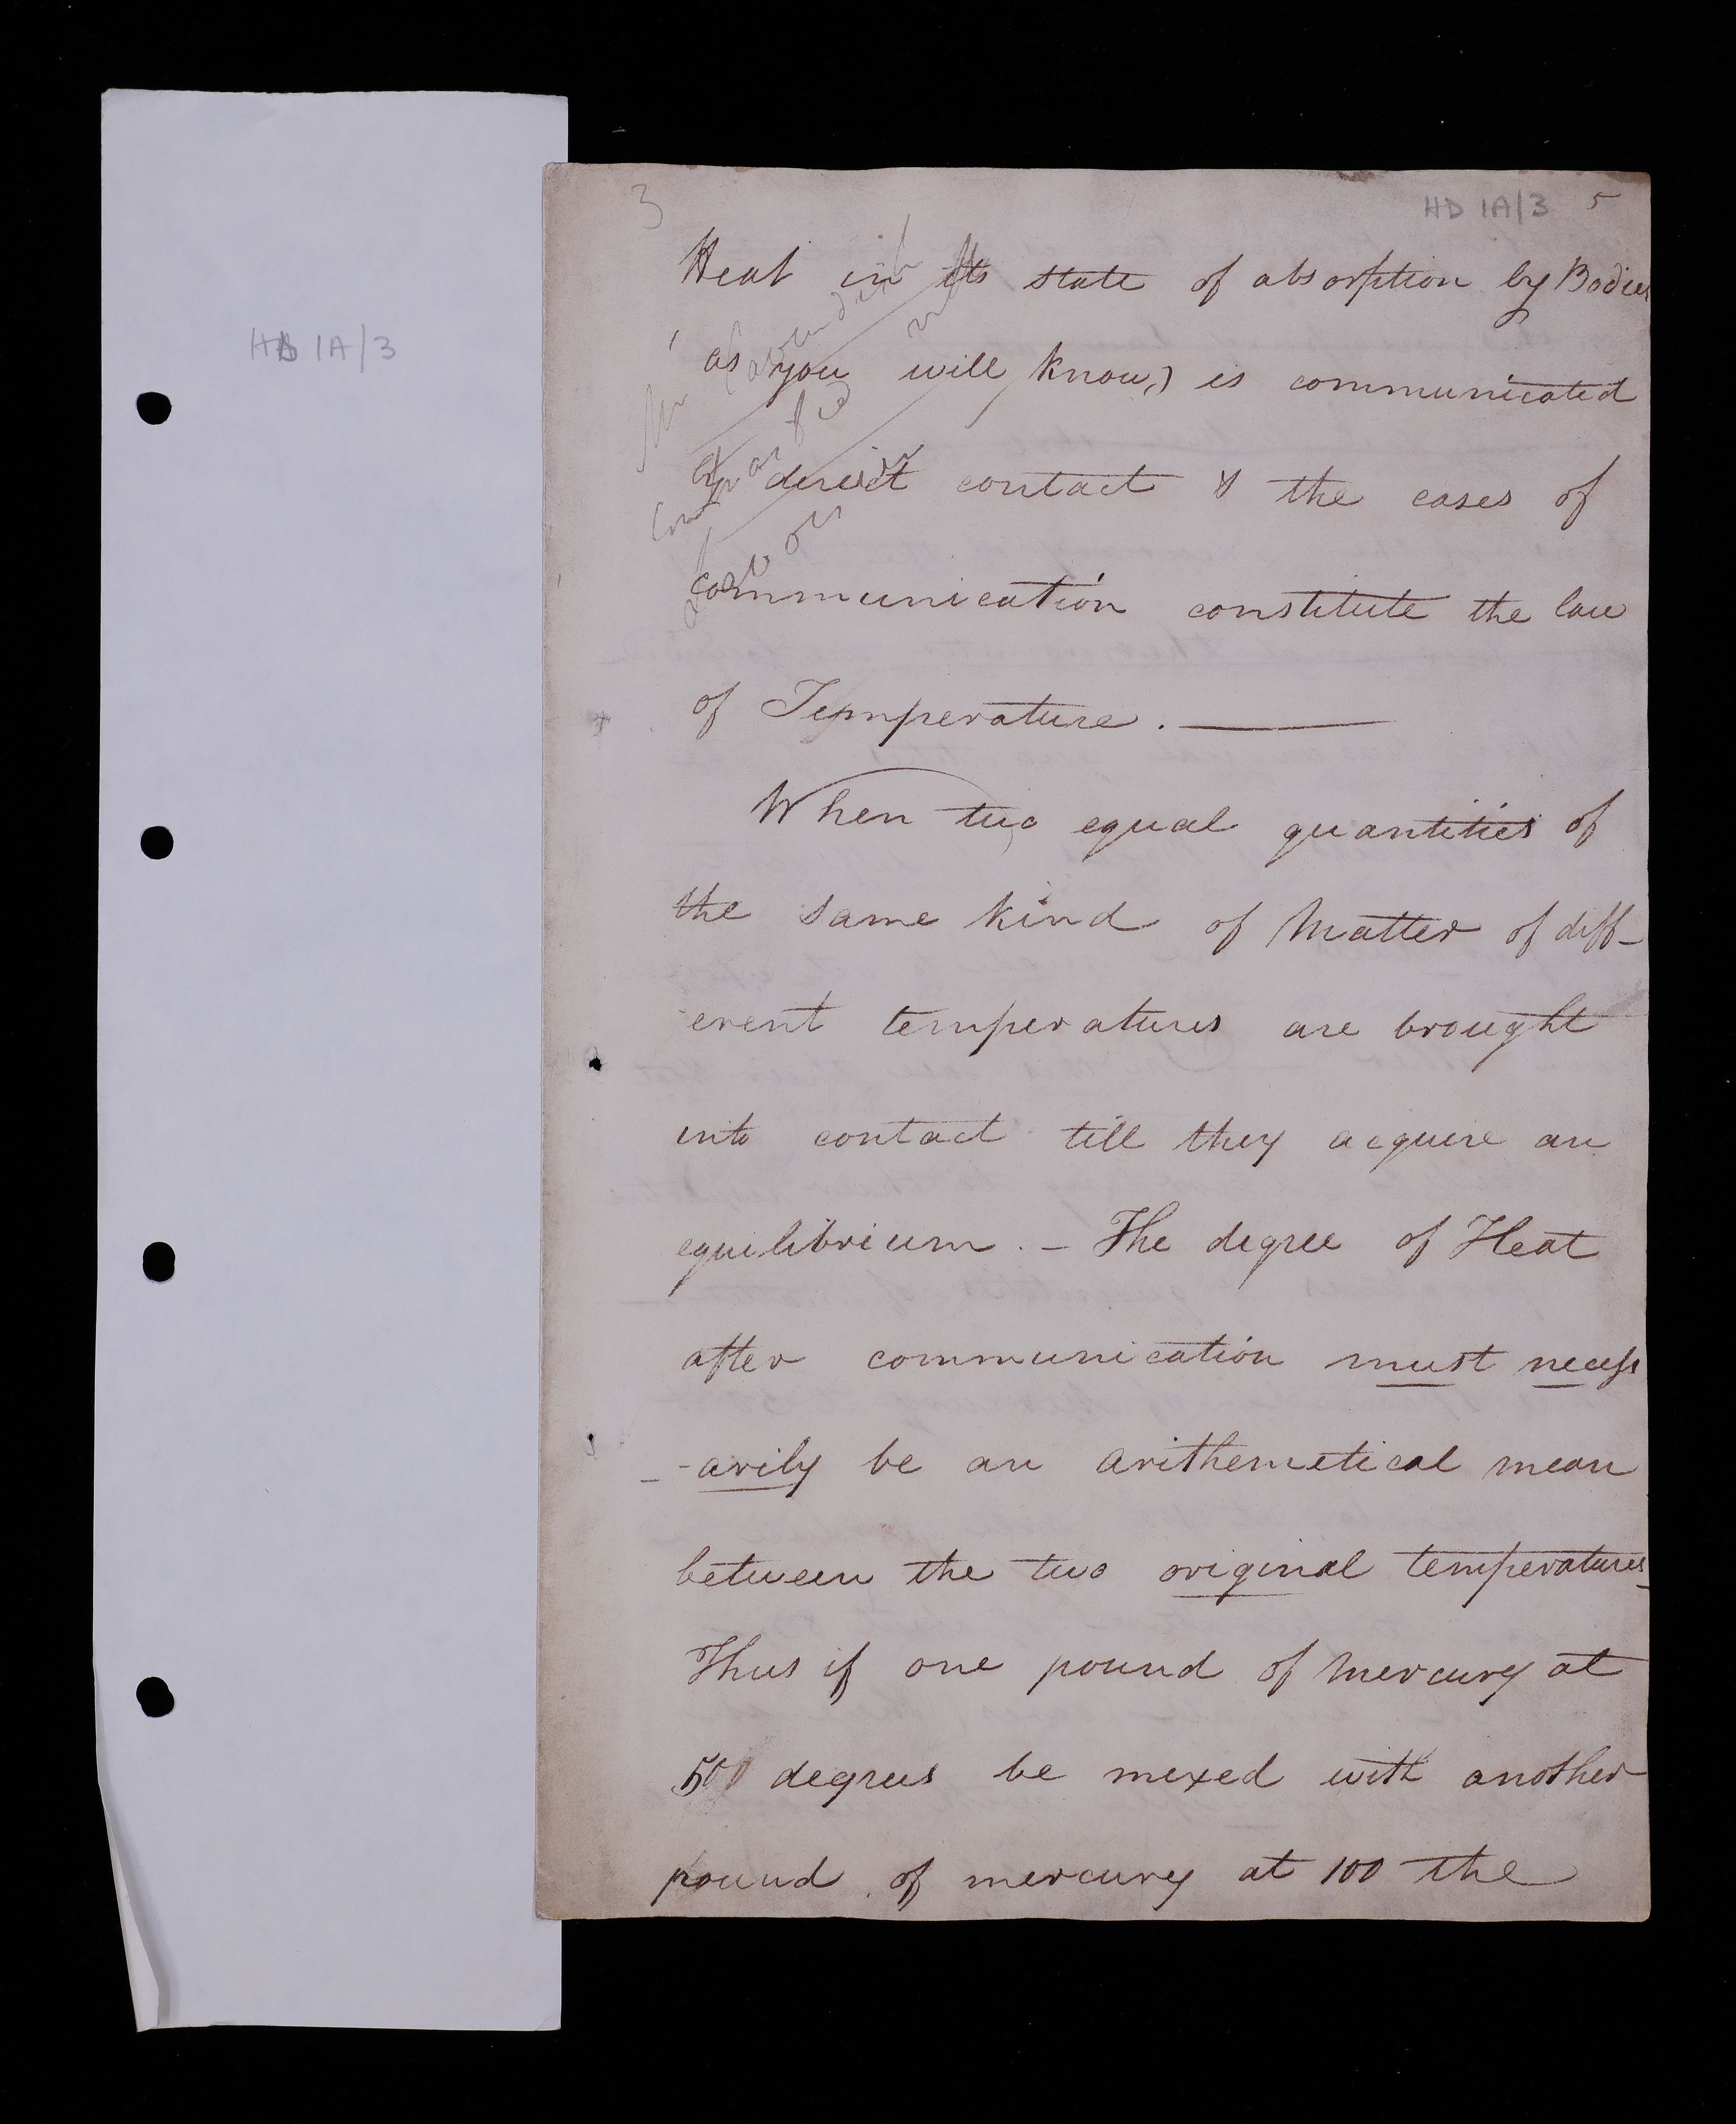 HD 1A/3
3
HD 1A/3 5
Heat in its state of absorption by Bodies
as you will know,) is communicated
by direct contact & the cases of
communication constitute the law
of Temperature. —
When two equal quantities of
the same kind of Matter of diff-
erent temperatures are brought
into contact till they acquire an
equilibrium. - The degree of Heat
after communication must necess
-arily be an arithemetical mean
between the two original temperatures
Thus if one pound of mercury at
500 degrees be mixed with another
pound of mercury at 100 the